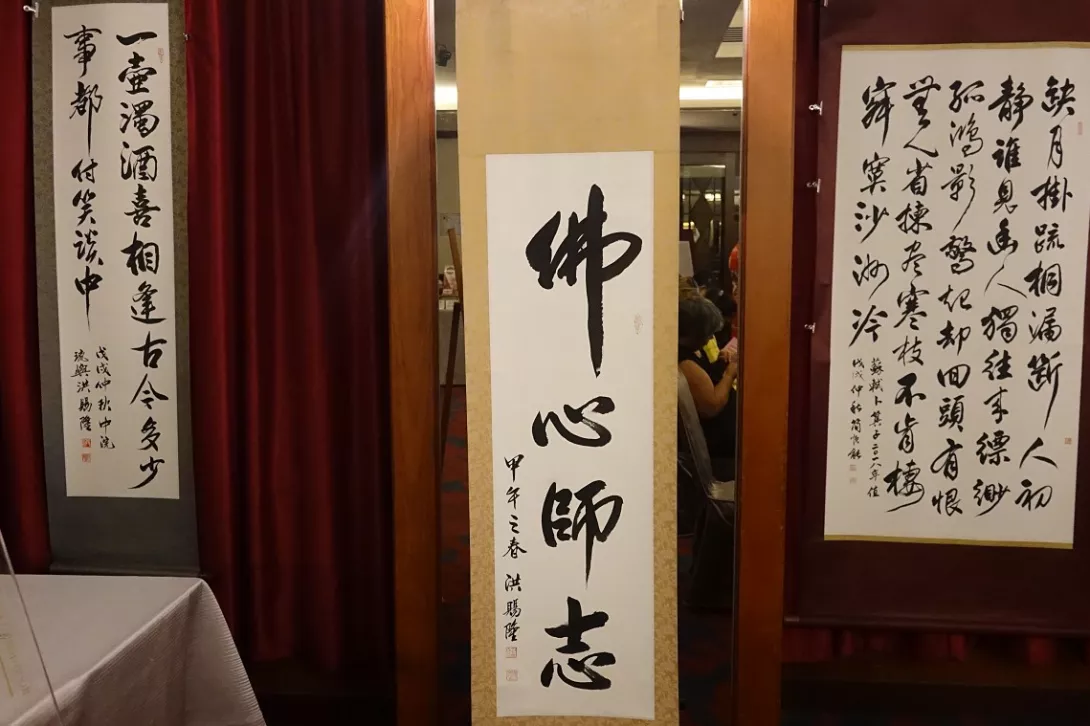 一壺濁酒喜相逢古今多少
事都付笑談中
戊戌仲秋中浣
洪賜隆
佛心師志
甲午之春 洪賜隆
缺月掛疏桐漏斷人初
靜誰見幽人獨往来縹緲
孤鴻影驚起却回頭有恨
無人省揀尽寒枝不肯棲
寂寞沙洲冷
蘇軾卜算子二〇一八年值
戊戌仲秋簡